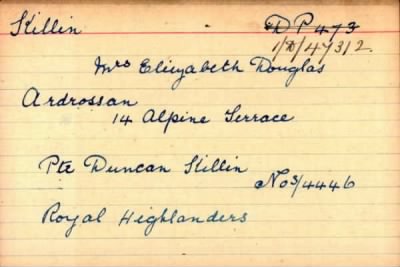 Killin D P 473
1/D/47312.
Mrs Elizabeth Douglas
Ardrossan
14 Alpine Terrace
Pte Duncan Killin
No S/4446
Royal Highlanders